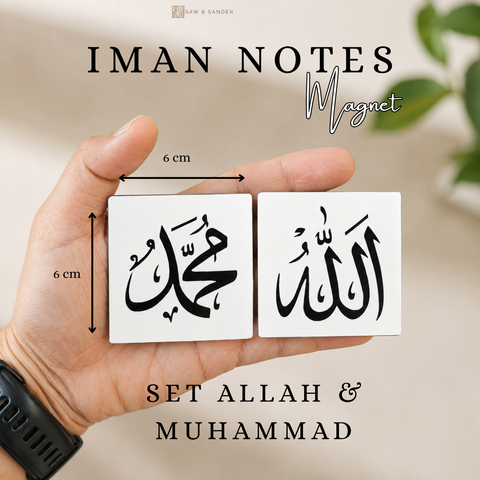 SAW & SANDER
IMAN NOTES
Magnet
6 cm
6 cm
محمد
الله
SET ALLAH &
MUHAMMAD